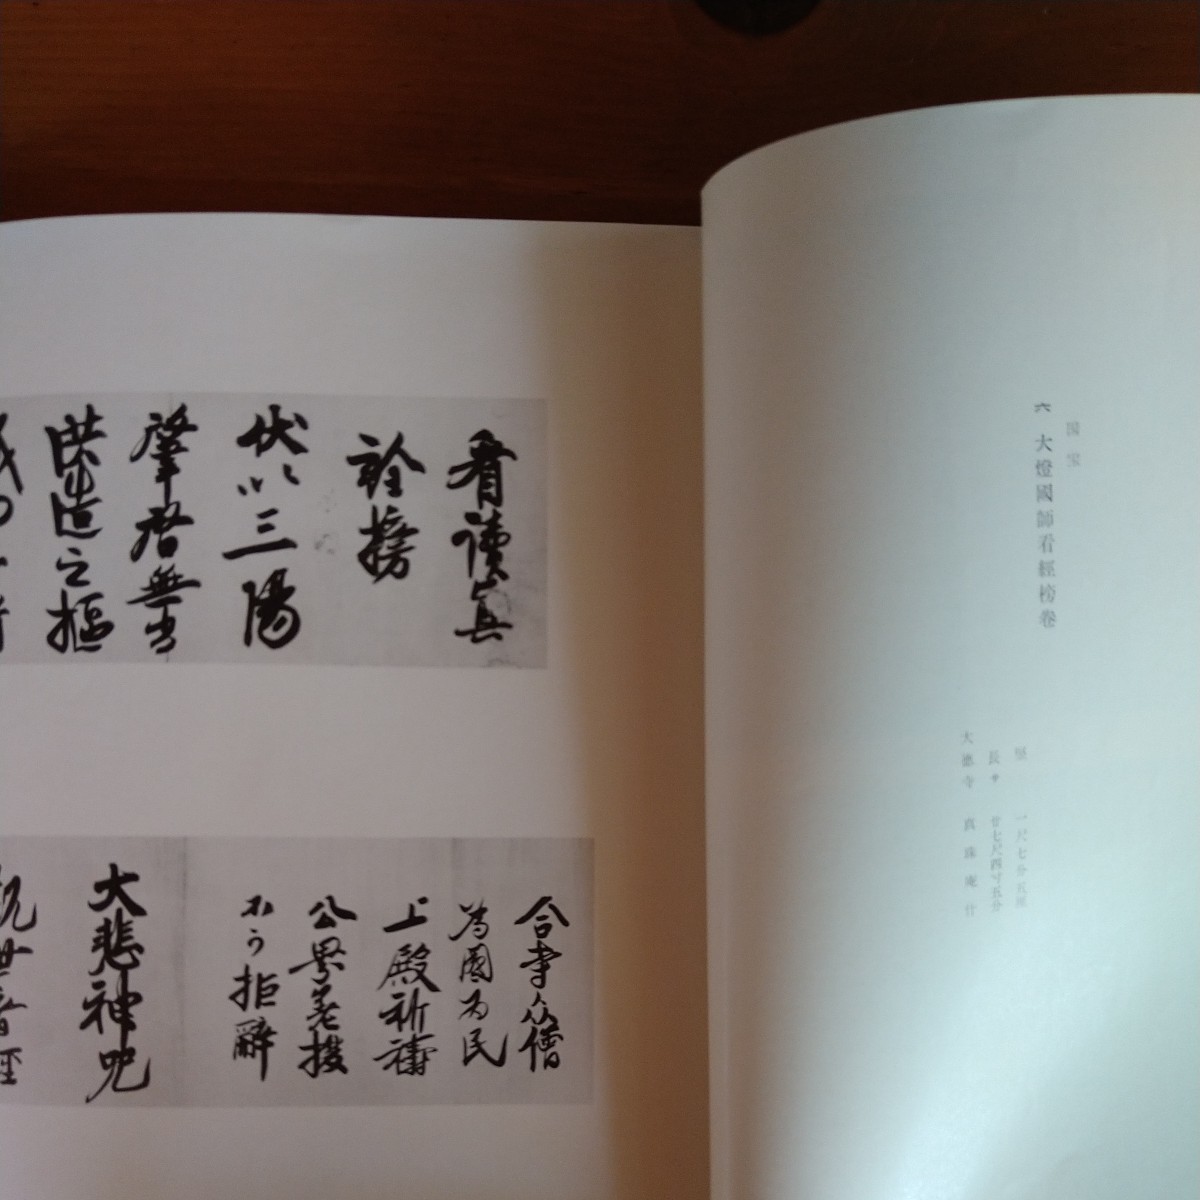 国宝
六 大燈國師看經榜卷
竪 一尺七分五厘
長サ 廿七尺四寸五分
大德寺 真珠庵
看讀真
詮榜
伏以三陽
肇啓無
洪造之樞
合寺众僧
為國為民
上殿祈禱
公界差撥
不可拒辭
大悲神咒
觀世音經